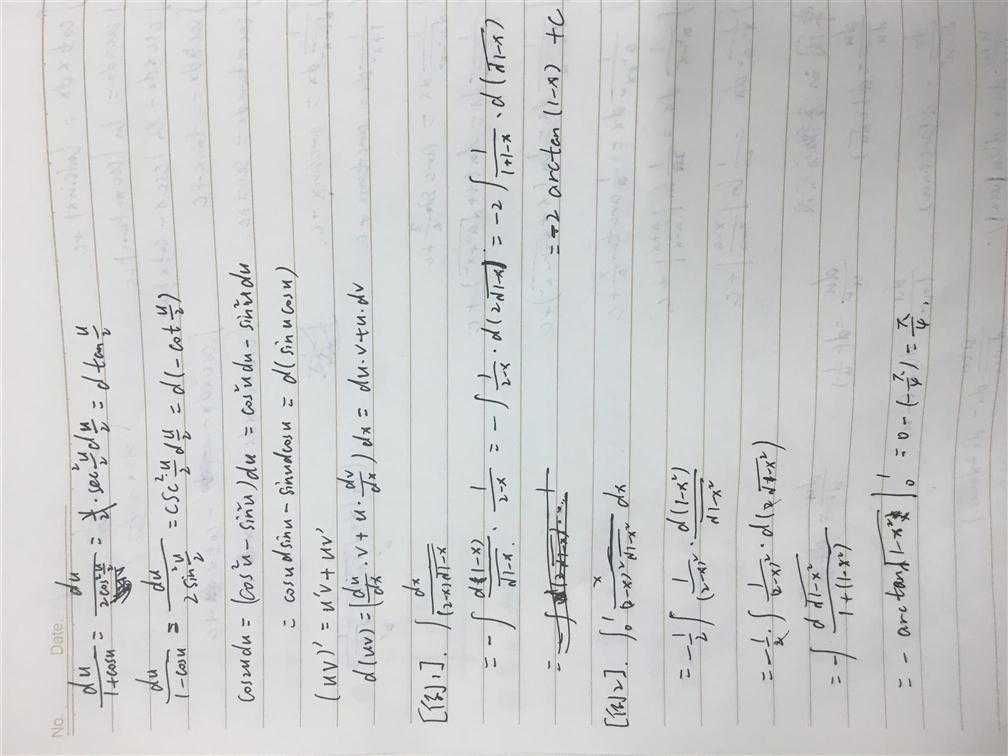 No.
Date
du/(1+cosu) = du/(2cos²(u/2)) = ·sec²(u/2) d(u/2) = dtan(u/2)
du/(1-cosu) = du/(2sin²(u/2)) = csc²(u/2) d(u/2) = d(-cot(u/2))
cos2udu = (cos²u - sin²u)du = cos²udu - sin²udu
= cosudsinu - sinudcosu = d(sinucosu)
(uv)' = u'v + uv'
d(uv) = (du/dx · v + u · dv/dx)dx = du·v + u·dv
[例1]. ∫ dx/((2-x)√(1-x))
= -∫ d(1-x)/√(1-x) · 1/(2-x) = -∫ 1/(2-x) · d(2√(1-x)) = -2∫ 1/(1+1-x) · d(√(1-x))
= -2 arctan(1-x) + C
[例2]. ∫₀¹ x/((2-x)²√(1-x²)) dx
= -1/2 ∫ 1/(2-x)² · d(1-x²)/√(1-x²)
= -1/2 ∫ 1/(2-x)² · d(2√(1-x²))
= -∫ d√(1-x²)/(1+(1-x²))
= - arctan√(1-x²) |₀¹ = 0 - (-π/4) = π/4.